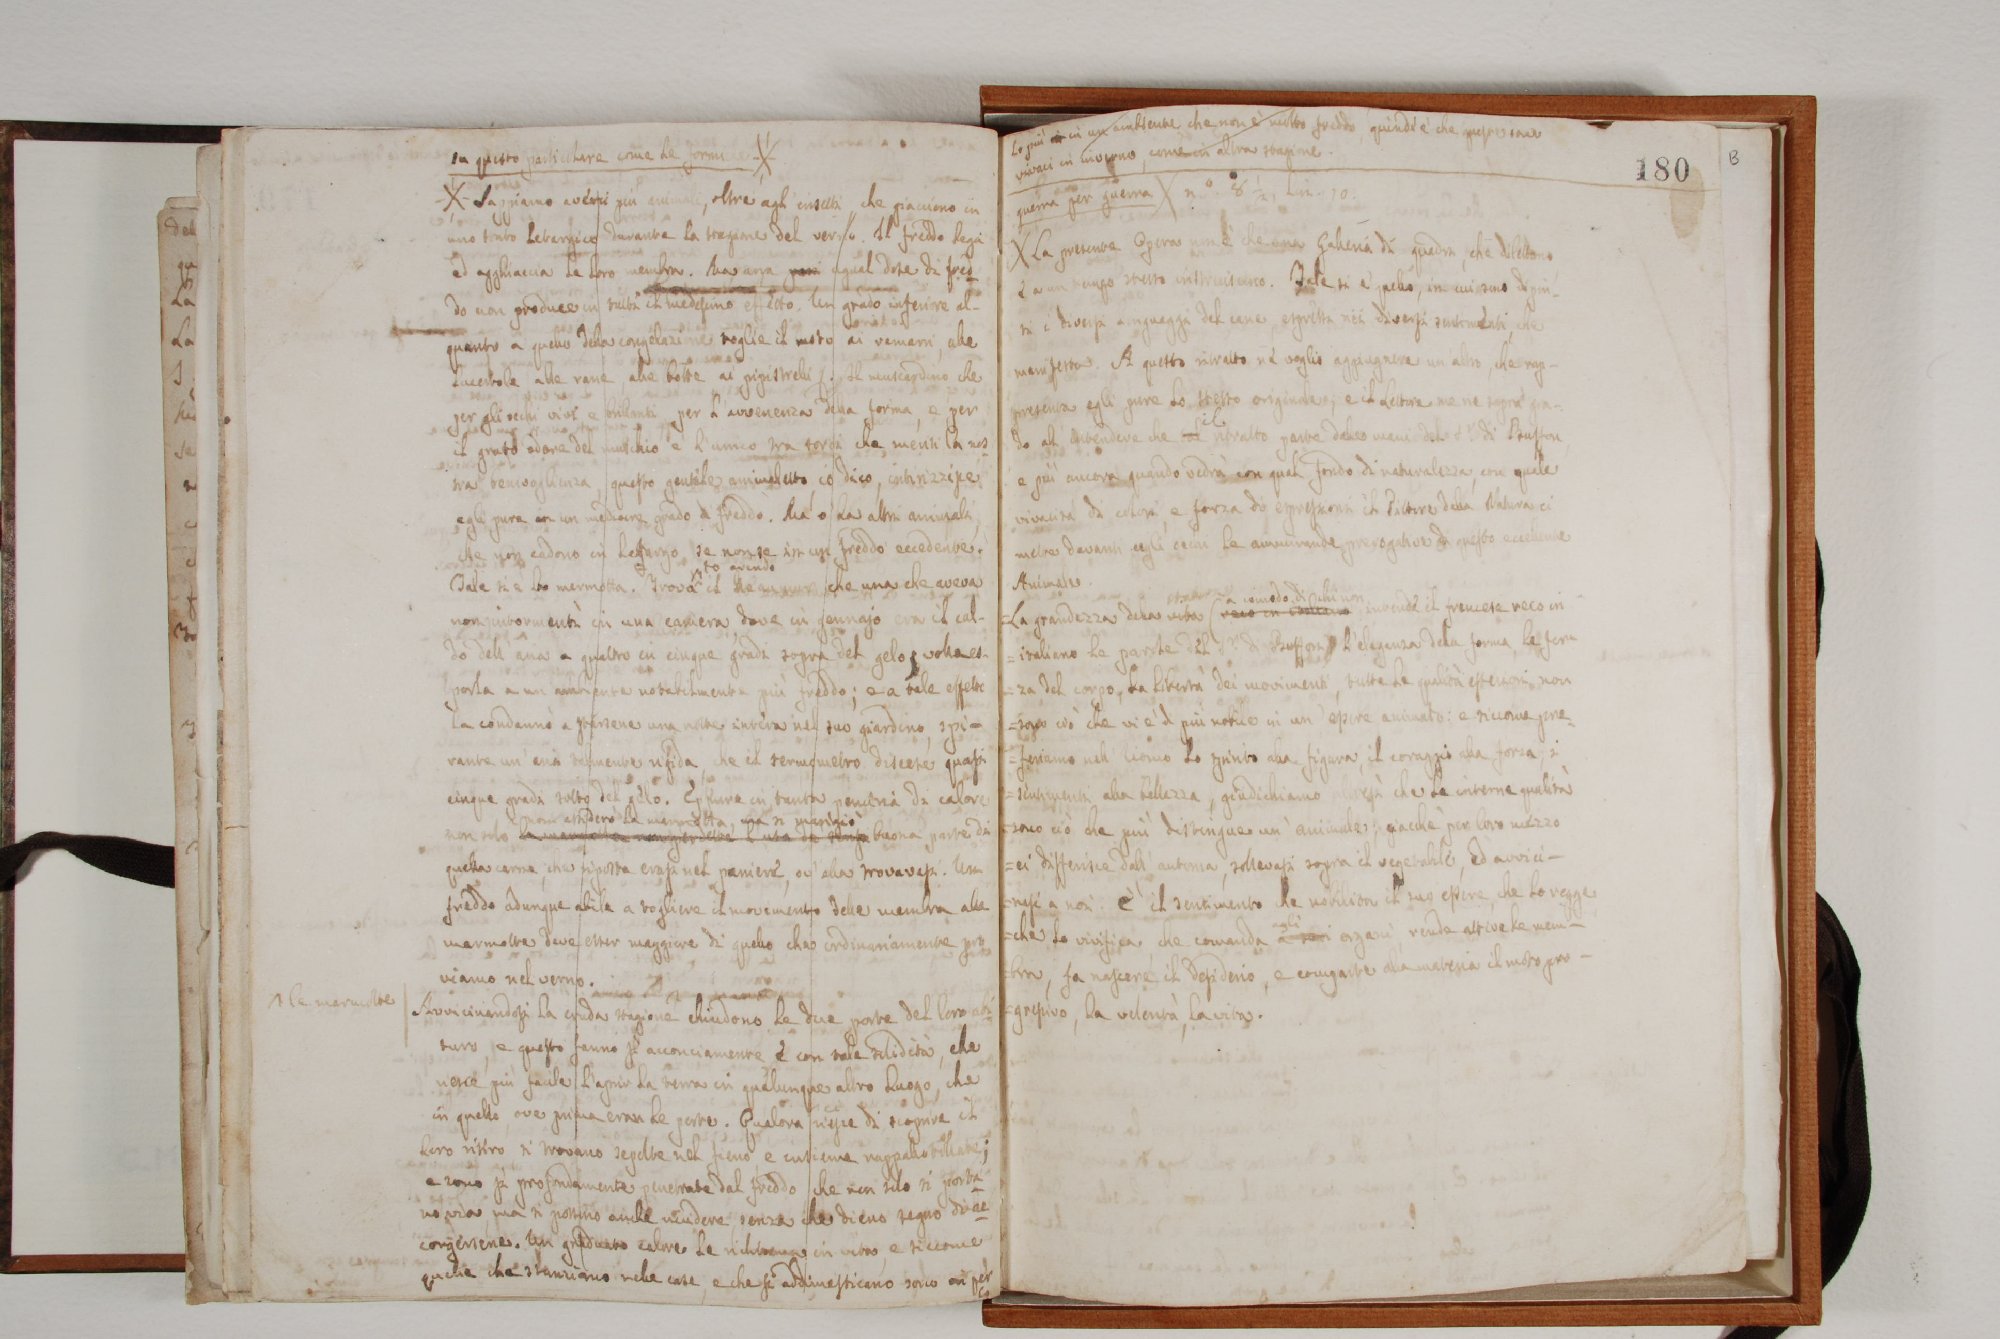 in questo particolare come le formiche X
X Sappiamo averci più animali, oltre agli insetti, che giaciono in
uno stato letargico durante la stagione del verno. Il freddo lega
ed agghiaccia le loro membra. Ma una ugual dose di fred-
do non produce in tutti il medesimo effetto. Un grado inferiore al-
quanto a quello della congelazione toglie il moto ai ramarri, alle
lucertole alle rane, alle botte ai pipistrelli. Il muscardino che
per gli occhi vivi e brillanti per l'avvenenza della forma, e per
il grato odore del muschio è l'unico tra sorci che meriti la nos
tra benivoglienza, questo gentile animaletto, io dico, intirizzisce
egli pure in un mediocre grado di freddo. Ma v'ha altri animali,
che non cadono in letargo, se non se in un freddo eccedente.
Tale si è la marmotta. che una che aveva
non intormentì in una camera, dove in gennajo era il cal-
do dell'aria a quattro in cinque gradi sopra del gelo; volle es-
porla a un ambiente notabilmente più freddo; e a tale effetto
la condannò a starsene una notte intera nel suo giardino, spi-
rante un'aria talmente rigida, che il termometro discese quasi
cinque gradi sotto del gelo. Eppure in tanta penuria di calore
non assiderò la marmotta, ma si mangiò
non solo buona parte di
quella carne, che riposta erasi nel paniere, ov'ella trovavasi. Un
freddo adunque abile a togliere il movimento delle membra alle
marmotte deve esser maggiore di quello che ordinariamente pro
viamo nel verno.
le marmotte
Avvicinandosi la cruda stagione chiudono le due porte del loro abi
turo, e questo fanno sì acconciamente e con tale solidità, che
riesce più facile l'aprir la terra in qualunque altro luogo, che
in quello, ove prima eran le porte. Qualora riesce di scoprire il
loro ritiro si trovano sepolte nel fieno e insieme rappallottollate;
e sono sì profondamente penetrate dal freddo che non solo si porta
no via, ma si possono anche uccidere senza che dieno segno di ac
corgersene. Un graduato calore le richiama in vita, e siccome
quelle che stanziano nelle case, e che si addimesticano sono an per
co
lo più in un ambiente che non è molto freddo, quindi è che queste sono
vivaci in inverno, come in altra stagione.
180
B
guerra per guerra X n.° 8 1/2, lin. 10.
X La presente Opera non è che una Galleria di quadri, che dilettono
e a un tempo stesso instruiscono. Tale si è quello, in cui sono dipin-
ti i diversi linguaggi del cane espressi nei diversi sentimenti, che
manifesta. A questo ritratto ne voglio aggiugnere un altro, che rap-
presenta egli pure lo stesso originale; e il Lettore me ne saprà gra-
do all'intendere che il ritratto parte dalle mani del Sr. di Buffon,
e più ancora quando vedrà con qual fondo di naturalezza, con quale
vivacità di colori, e forza di espressioni il Pittore della Natura ci
mette davanti agli occhi le ammirande prerogative di questo eccellente
Animale.
a comodo di chi non
=La grandezza della vita (reco in italiano intende il francese reco in
=italiano le parole del Sr. di Buffon) l'eleganza della forma, la for
=za del corpo, la libertà dei movimenti, tutte le qualità esteriori non
=sono ciò che vi è di più nobile in un essere animato: e siccome pre-
=feriamo nell'uomo lo spirito alla figura, il coraggio alla forza, i
=sentimenti alla bellezza, giudichiamo altresì che le interne qualità
=sono ciò che più distingue un'animale; giacchè per loro mezzo
=ei differisce dall'automa, sollevasi sopra il vegetabile, ed avvici-
=nasi a noi. È il sentimento che nobilita il suo essere, che lo regge,
=che lo vivifica, che comanda agli organi, rende attive le mem-
=bra, fa nascere il desiderio, e comparte alla materia il moto pro-
=gressivo, la volontà, la vita.